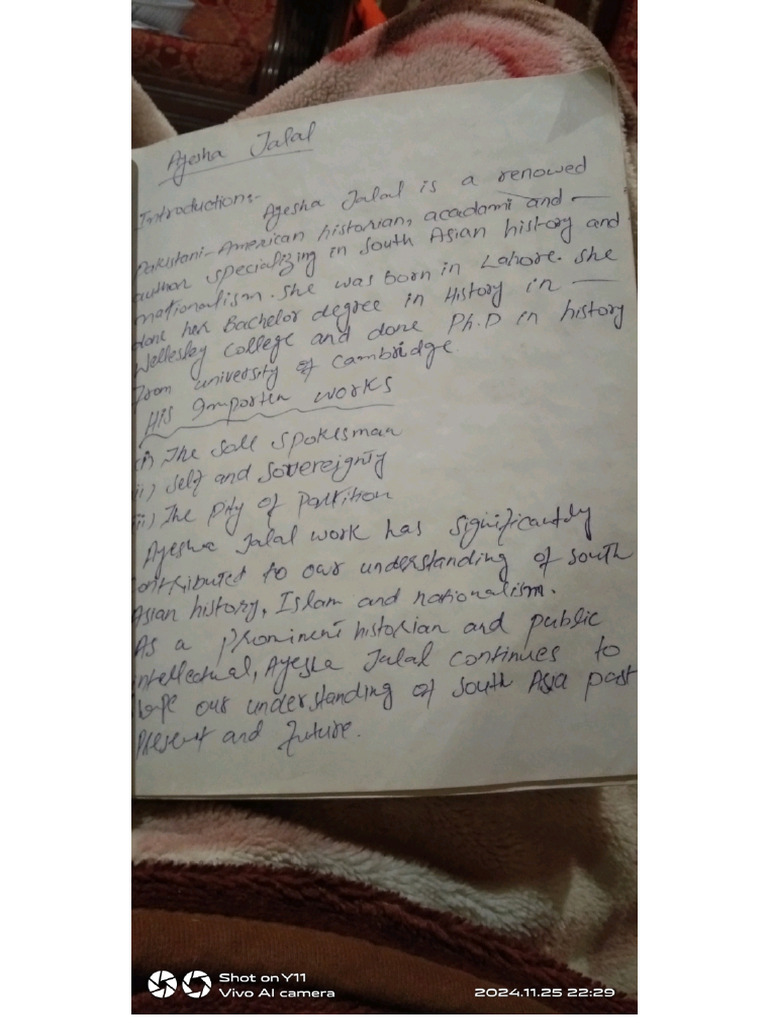 Ayesha Jalal
Introduction:-
Ayesha Jalal is a renowed
Pakistani-American historian, acadami and —
author specializing in South Asian history and
nationalism. She was born in Lahore. She
done her Bachelor degree in History in —
Wellesley College and done Ph.D in history
from university of Cambridge.
His Importen works
(i) The Sole Spokesman
ii) Self and Sovereignty
iii) The Pity of Partition
Ayesha Jalal work has significantly
contributed to our understanding of South
Asian history, Islam and nationalism.
As a prominent historian and public
intellectual, Ayesha Jalal continues to
our understanding of South Asia past
Present and future.
Shot on Y11
Vivo AI camera
2024.11.25 22:29